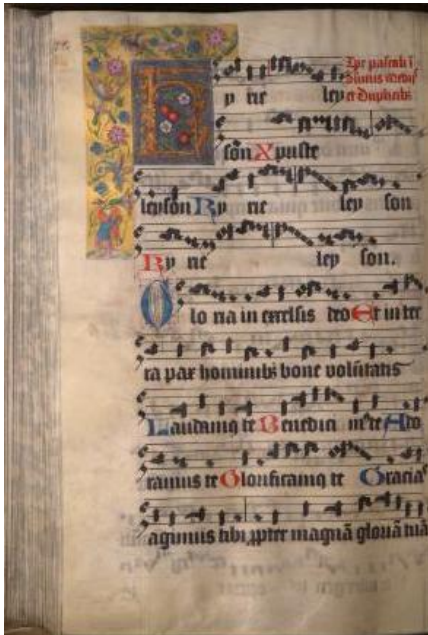 Ky rie ley
et Duplicibȝ
son Xpriste
leyson Ky rie ley son
Ky rie ley son.
Glo ria in excelsis deo Et in ter
ra pax hominibȝ bone volūtatis
Laudamꝰ te Benedici mꝰ te Ado
ramus te Glorificamꝰ te Gracias
agimus tibi ꝓpter magnā gloriā tuā